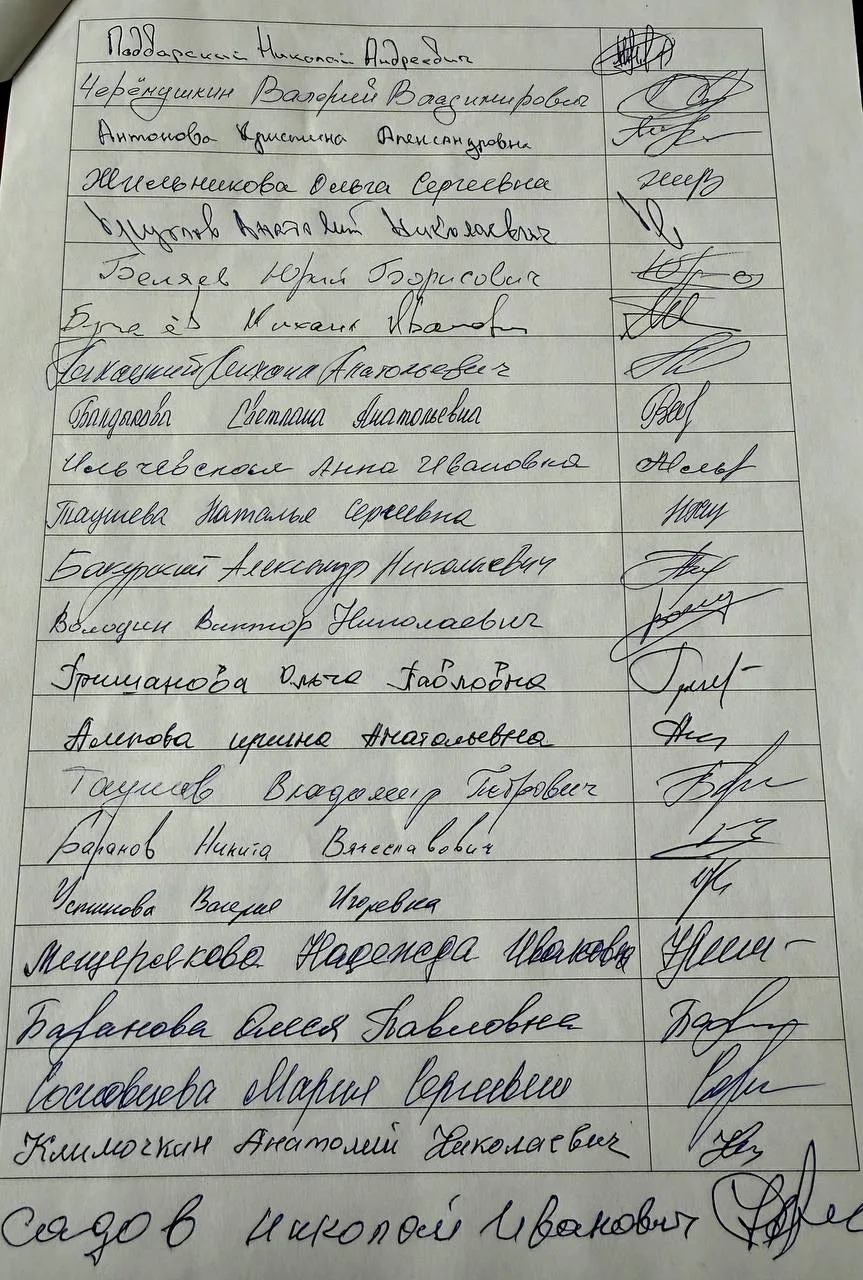 Поддарский Николай Андреевич
Черёмушкин Валерий Владимирович
Антонова Кристина Александровна
Жительникова Ольга Сергеевна
Анатолий Николаевич
Беляев Юрий Борисович
Михаил Иванович
Михаил Анатольевич
Балдыкова Светлана Анатольевна
Ильчевская Анна Ивановна
Таушева Наталья Сергеевна
Бакурский Александр Николаевич
Володин Виктор Николаевич
Гришанова Ольга Павловна
Алипова Ирина Анатольевна
Таушев Владимир Петрович
Баранов Никита Вячеславович
Устинова Валерия Игоревна
Мещерякова Надежда Ивановна
Баранова Олеся Павловна
Мария Сергеевна
Климочкин Анатолий Николаевич
Садов Николай Иванович